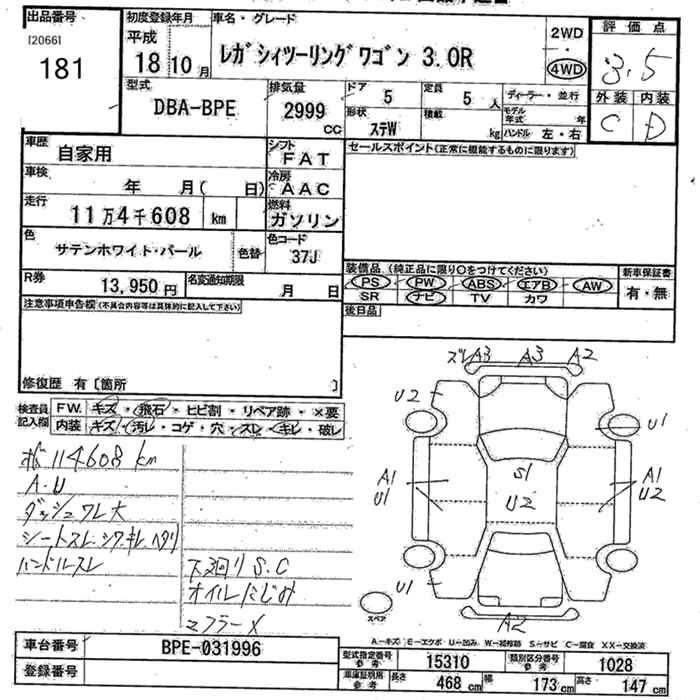 出品番号
[2066]
181
初度登録年月
平成
18 10 月
車名・グレード
レガシィツーリングワゴン 3.0R
2WD
・
4WD
評価点
3.5
外装 内装
C D
型式
DBA-BPE
排気量
2999
CC
ドア
5
定員
5 人
ディーラー・並行
形状
ステW
積載
kg
モデル年式 年
ハンドル 左・右
車歴
自家用
シフト
FAT
セールスポイント(正常に機能するものに限ります)
車検
年 月( 日)
冷房
AAC
走行
11万4千608 km
燃料
ガソリン
色
サテンホワイト・パール
色替
色コード
37J
R券
13,950 円
名変通知期限
月 日
装備品 (純正品に限り○をつけてください)
新車保証書
PS PW ABS エアB AW
有・無
SR ナビ TV カワ
注意事項申告欄(不具合内容等は具体的に記入して下さい)
後日品
修復歴 有〔箇所 〕
検査員
記入欄
FW. キズ・飛石・ヒビ割・リペア跡・×要
内装 キズ・汚レ・コゲ・穴・スレ・キレ・破レ
114608 km
A.U
ダッシュワレ大
シートスレ.シワ.キレ.ヘタリ
ハンドルスレ
下廻りS.C
オイルにじみ
マフラーX
ズレ A3 A3 A2
U2
U1
A1
U1
S1
U2
A1
U2
U1
スペア
A2
A-キズ E-エクボ U-凹み W-補修跡 S-サビ C-腐食 XX-交換済
車台番号
BPE-031996
登録番号
型式指定番号
参考
15310
類別区分番号
参考
1028
車庫証明用
参考
長さ 468 cm 幅 173 cm 高さ 147 cm